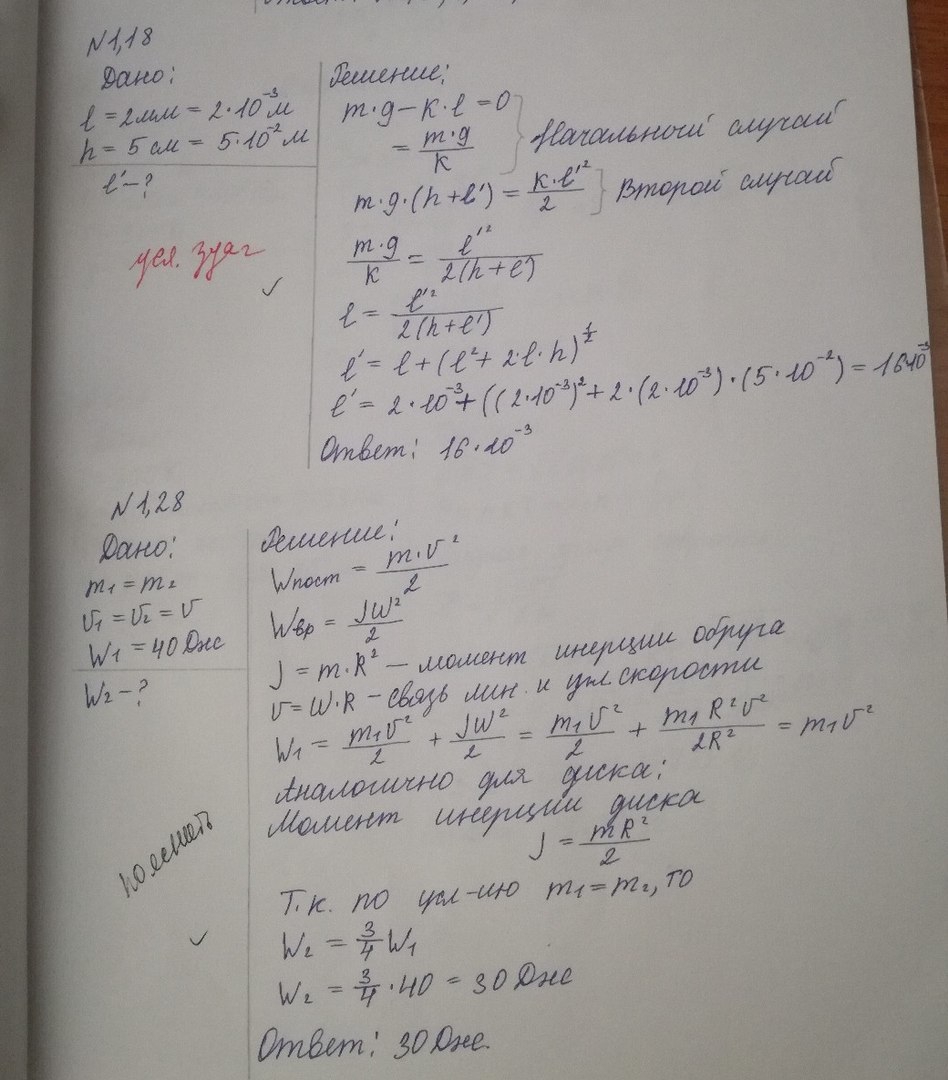 N1,18
Дано:
l = 2мм = 2·10⁻³м
h = 5 см = 5·10⁻² м
l' – ?
Решение:
m·g – k·l = 0
= m·g/k
Начальный случай
m·g·(h+l') = k·l'²/2
Второй случай
m·g/k = l'²/2(h+l)
l = l'²/2(h+l')
l' = l + (l² + 2·l·h)^½
l' = 2·10⁻³ + ((2·10⁻³)² + 2·(2·10⁻³)·(5·10⁻²) = 16·10⁻³
Ответ: 16·10⁻³
усл. зудаг
N1,28
Дано:
m₁ = m₂
v₁ = v₂ = v
W₁ = 40 Дж
W₂ – ?
Решение:
Wпост = m·v²/2
Wвр = JW²/2
J = m·R² – момент инерции обруга
v = W·R – связь лин. и угл. скорости
W₁ = m₁v²/2 + JW²/2 = m₁v²/2 + m₁R²v²/2R² = m₁v²
Аналогично для диска:
Момент инерции диска
J = mR²/2
Т.к. по усл-ию m₁ = m₂, то
W₂ = 3/4 W₁
W₂ = 3/4 · 40 = 30 Дж
Ответ: 30 Дж
пояснить